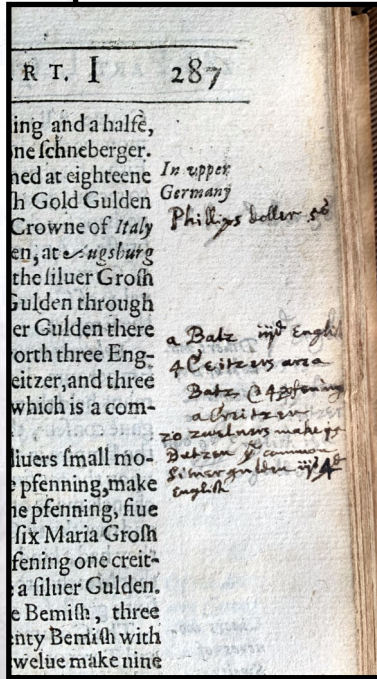 RT. I 287
ing and a halfe,
ne ſchneberger.
ned at eighteene
h Gold Gulden
Crowne of Italy
en, at Augsburg
the ſiluer Groſh
Gulden through
er Gulden there
orth three Eng-
eitzer, and three
which is a com-
liuers ſmall mo-
e pfenning, make
ne pfenning, fiue
ſix Maria Groſh
fening one creit-
a ſiluer Gulden.
e Bemiſh, three
enty Bemiſh with
welue make nine
In vpper
Germany
Phillips doller
a Batz iijd English
4 Creitzers are a
Batz & 4 pfening
a Creitzer
20 make
Batzen common
Siluer gulden
English